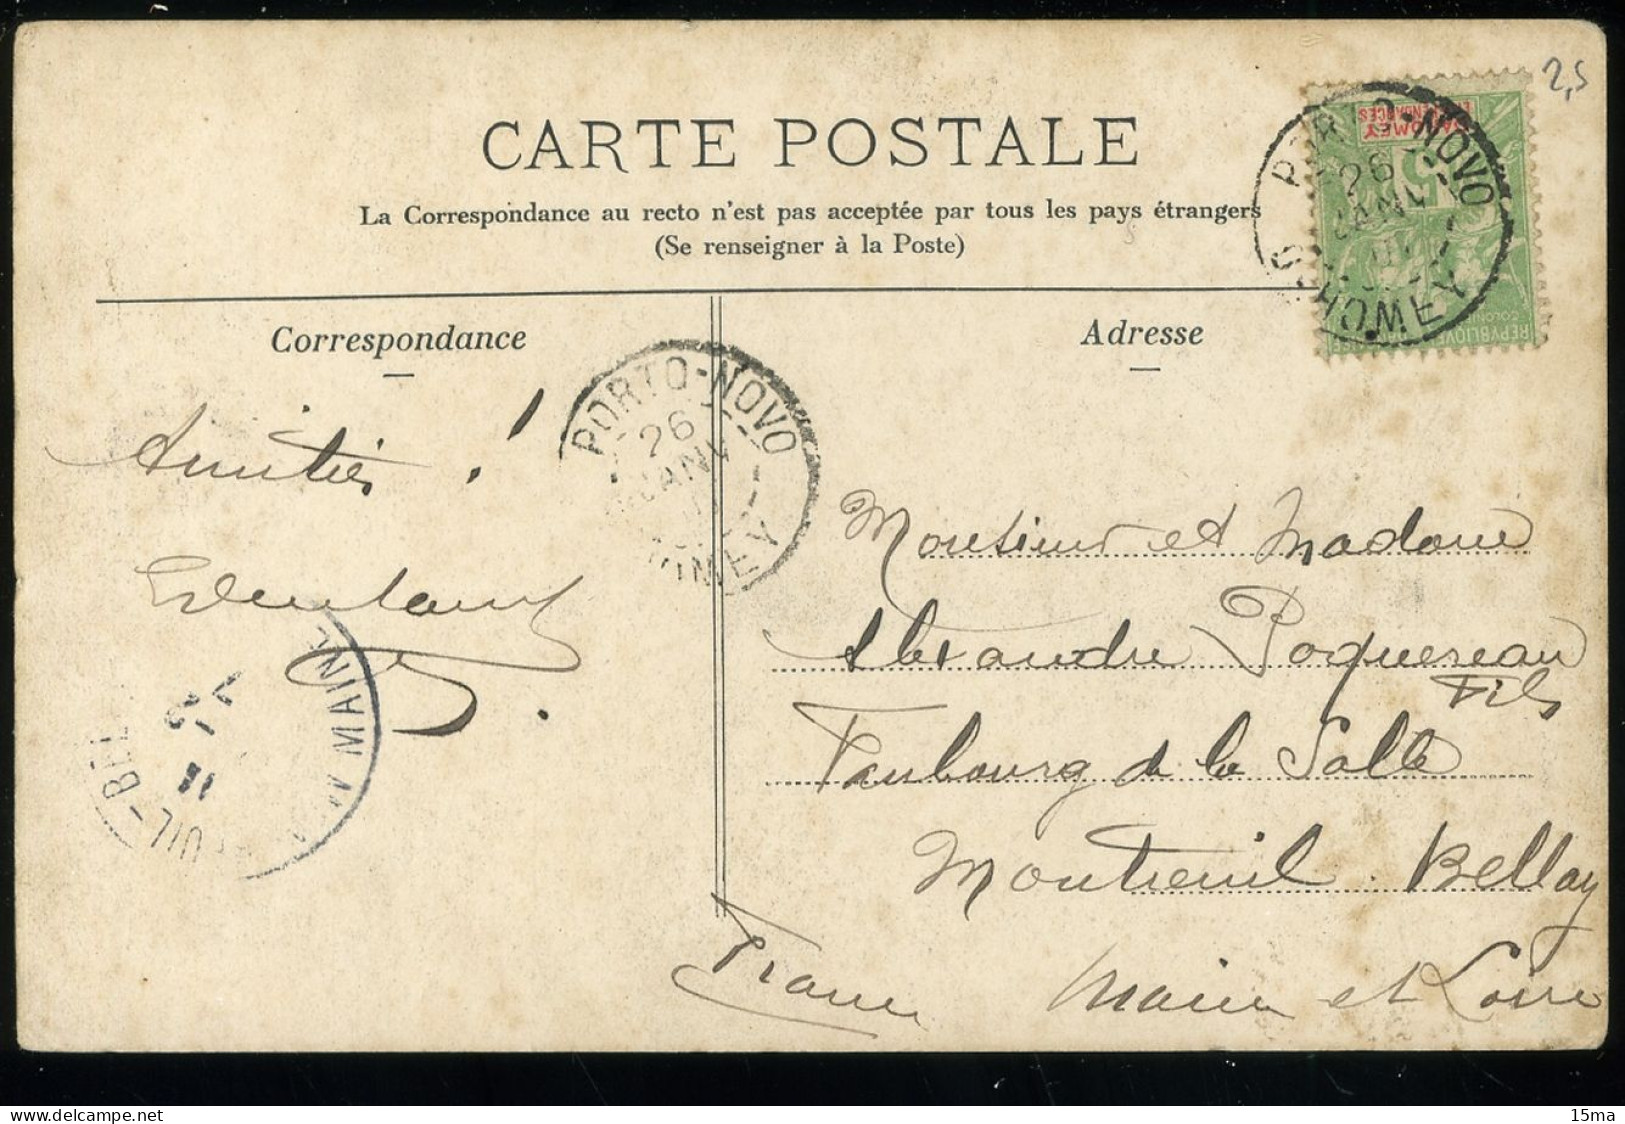 2,5
CARTE POSTALE
La Correspondance au recto n'est pas acceptée par tous les pays étrangers
(Se renseigner à la Poste)
DAHOMEY
ET DÉPENDANCES
5
PORTO-NOVO
26
JANV
DAHOMEY
Correspondance
Adresse
Amitiés !
PORTO-NOVO
26
JANV
Monsieur et Madame
Alexandre Poquereau
Fils
Faubourg de la Salle
Montreuil. Bellay
Maine et Loire
France
MAINE
11
www.delcampe.net
15ma